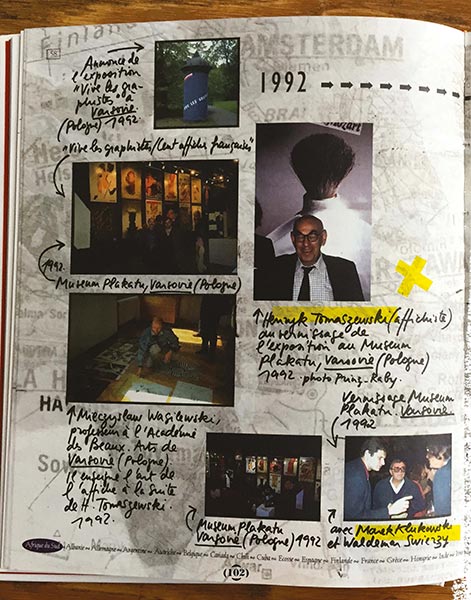 58
Annonce de
l'exposition
"Vive les gra-
phistes" à
Varsovie
(Pologne) 1992.
AMSTERDAM
1992
"Vive les graphistes/Cent affiches françaises"
1992.
Museum Plakatu, Varsovie (Pologne)
↑ Henryk Tomaszewski (affichiste)
au vernissage de
l'exposition au Museum
Plakatu, Varsovie (Pologne)
1992. photo Puig-Raby.
↑ Mieczyslaw Wasilewski,
professeur à l'Académie
des Beaux-Arts de
Varsovie (Pologne).
il enseigne l'art de
l'affiche à la suite
de H. Tomaszewski.
1992.
Vernissage Museum
Plakatu. Varsovie.
1992
Museum Plakatu
Varsovie (Pologne) 1992
avec Marek Klukowski
et Waldemar Swierzy
Afrique du Sud Albanie Allemagne Argentine Autriche Belgique Canada Chili Cuba Ecosse Espagne Finlande France Grèce Hongrie Inde
(102)